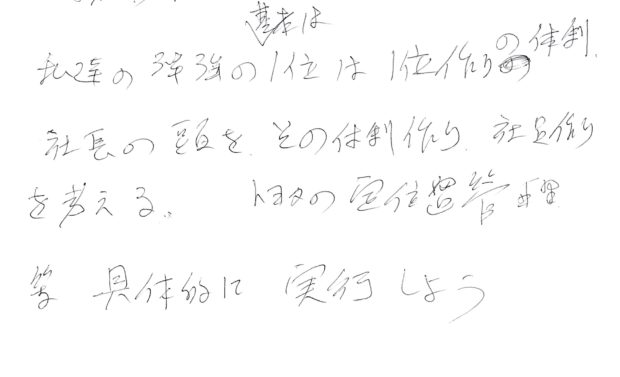 基本は
の弾強の1位は1位作りの体制.
社長の頭を、その体制作り、社長作り
を考える。 トヨタの定位置管理
等 具体的に 実行しよう